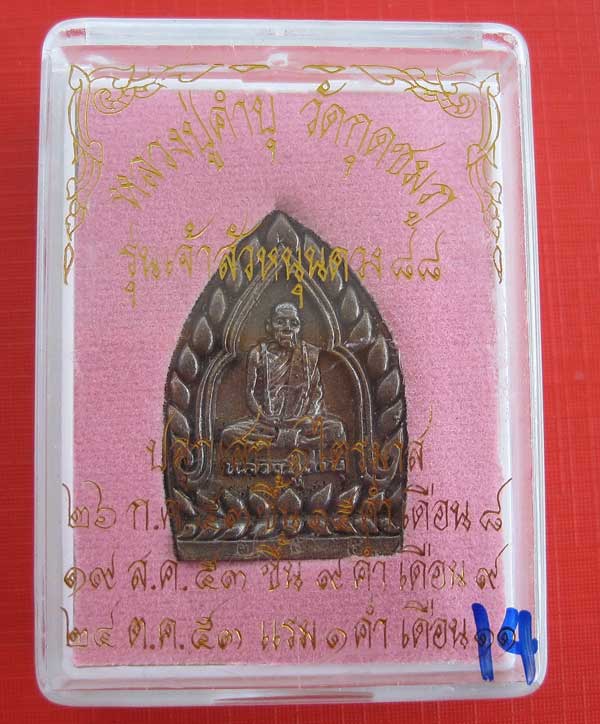 หลวงปู่คำบุ วัดกุดชมภู
รุ่นเจ้าสัวหนุนดวง ๘๘
ปลุกเสก ๑ ไตรมาส
๒๖ ก.ค. ๕๓ ขึ้น ๑๕ ค่ำ เดือน ๘
๑๙ ส.ค. ๕๓ ขึ้น ๙ ค่ำ เดือน ๙
๒๔ ต.ค. ๕๓ แรม ๑ ค่ำ เดือน ๑๑
14